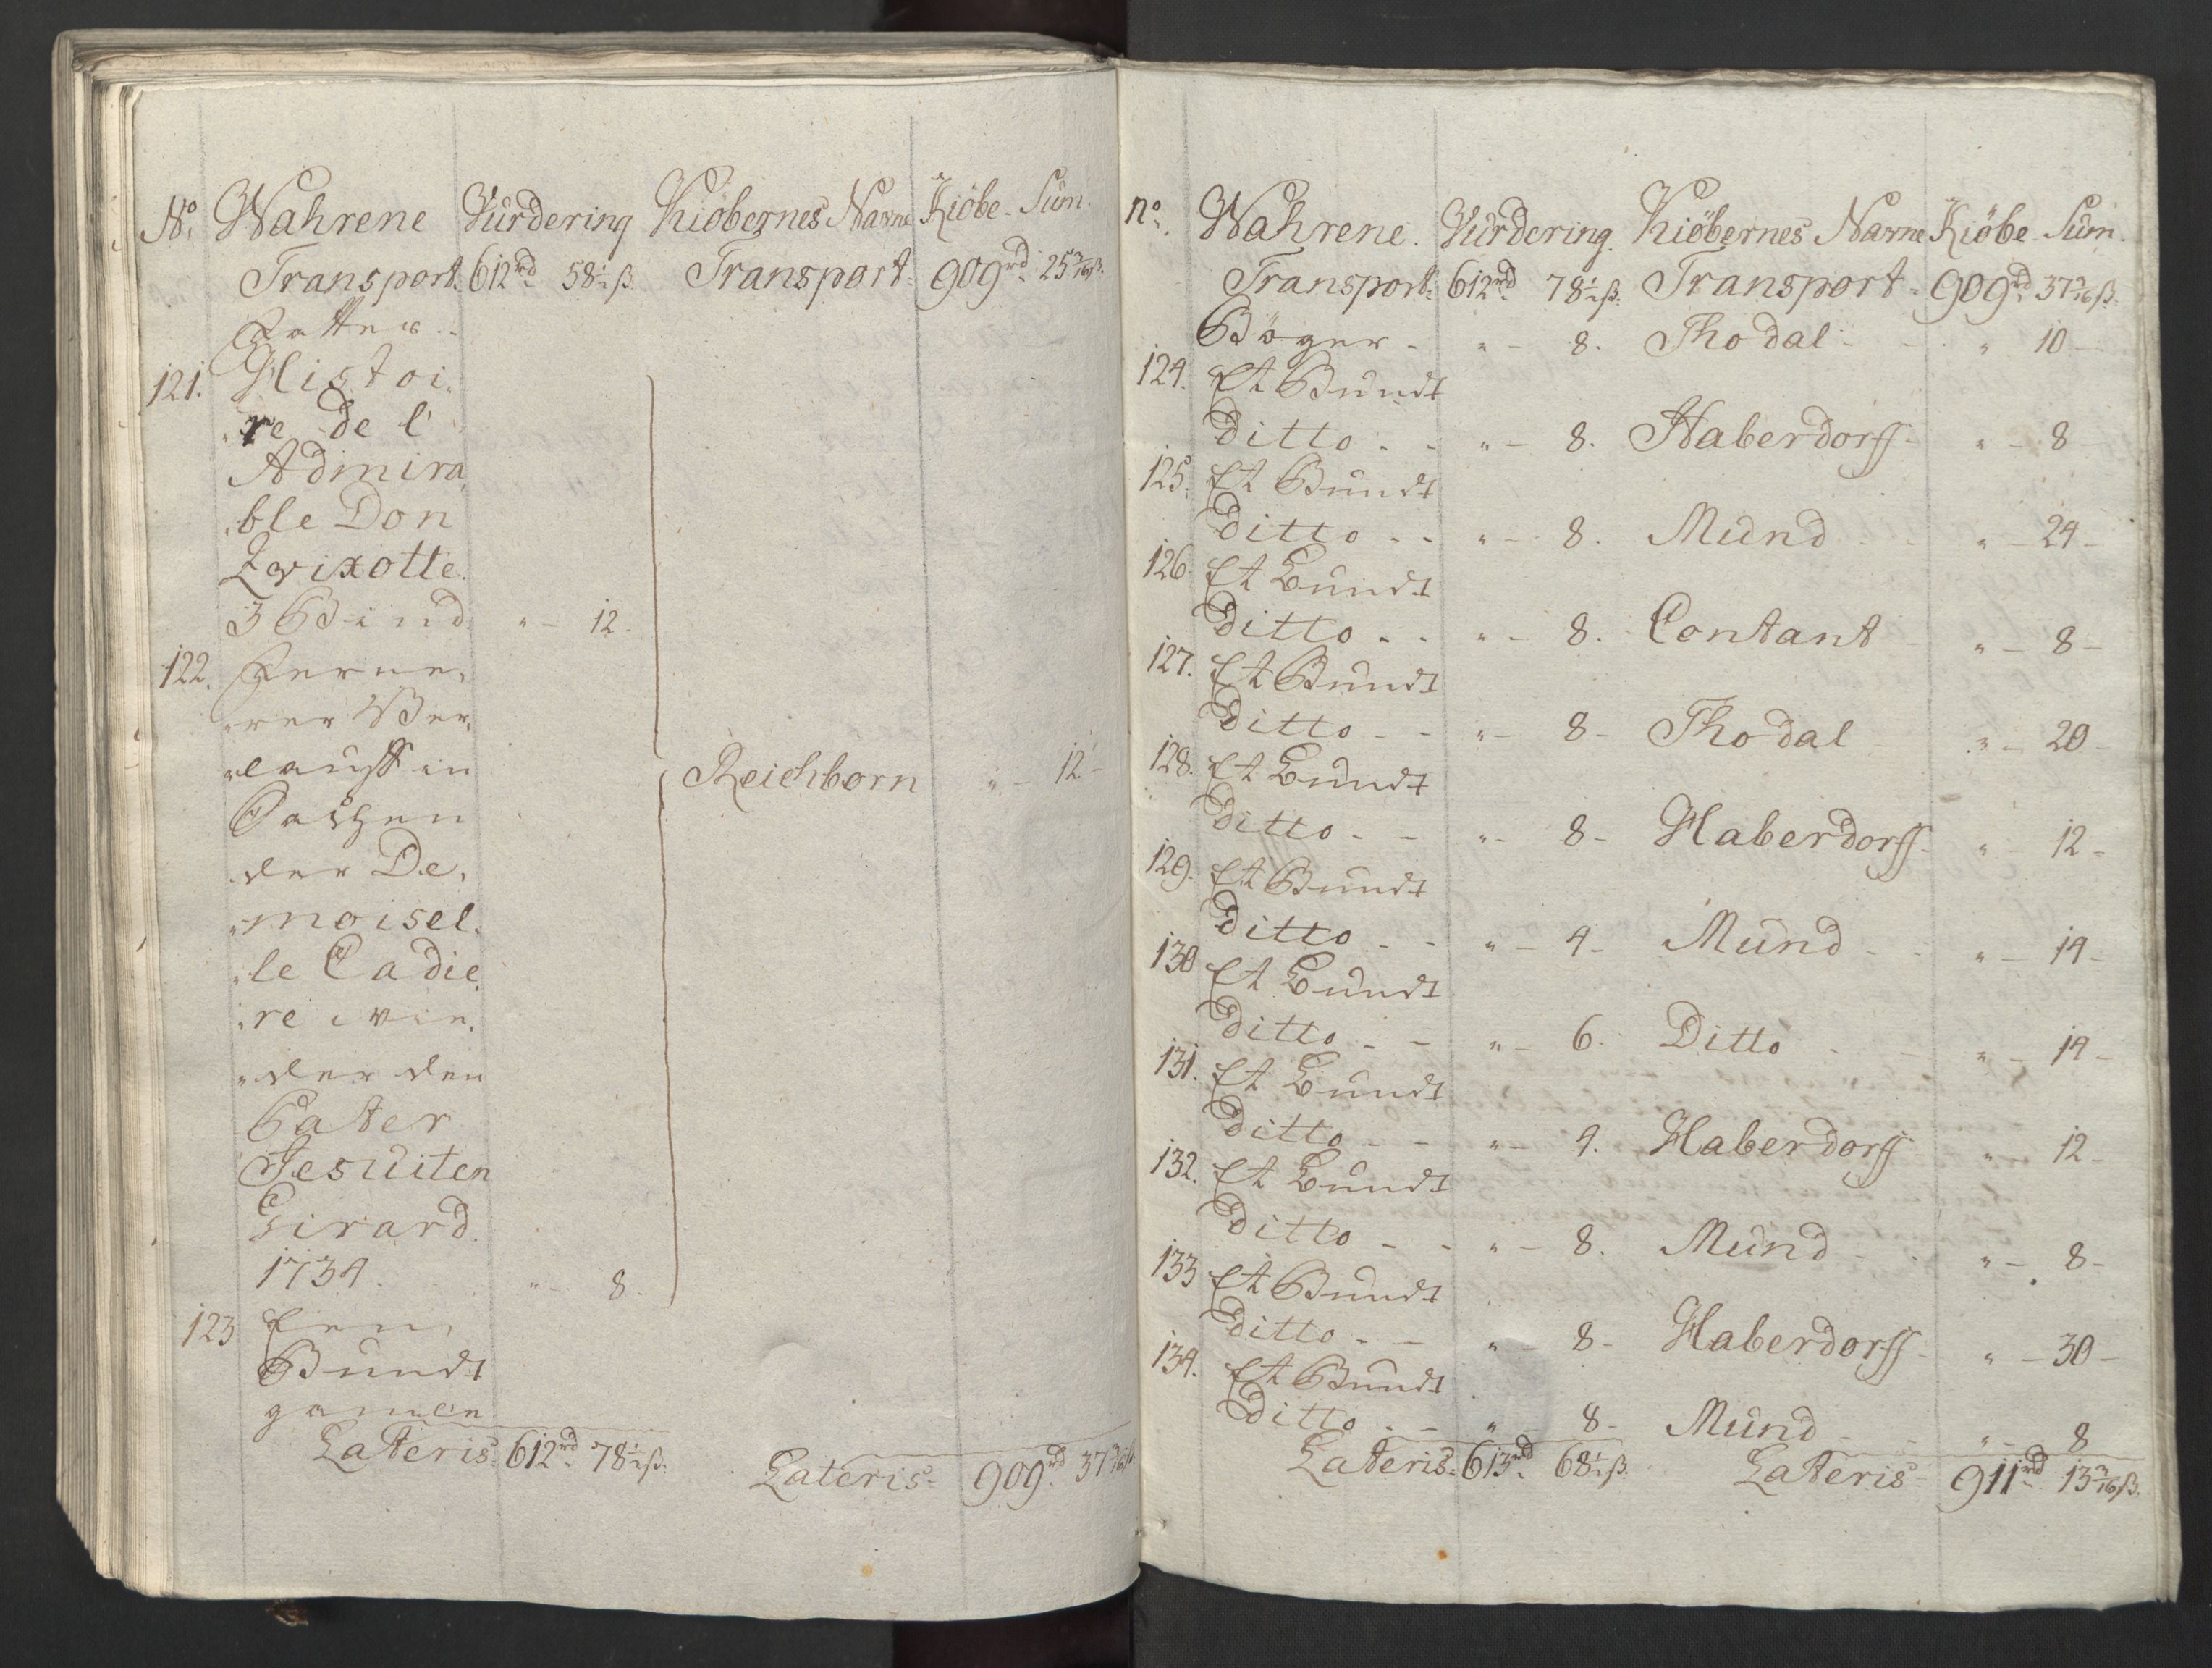 No. Wahrene Vurdering Kiöbernes Navne Kiöbe Sum.
Transport. 612rd 58½ß. Transport. 909rd 25 3/16ß.
121. Histoi¬
re de l'
Admira¬
ble Don
Qvixotte.
3 Bind. " — 12.
122. Ferne¬
rer Ver¬
lauff in
Sachen
der De¬
moisel¬
le Cadie¬
re wie¬
der den
Pater
Jesuiten
Girard.
1734. " — 8. Reichborn " — 12 —
123 Een
Bundt
gamle
Lateris. 612rd 78½ß. Lateris. 909rd 37 3/16ß.
no. Wahrene. Vurdering. Kiöbernes Navne Kiöbe Sum.
Transport. 612rd 78½ß. Transport. 909rd 37 3/16ß.
Böger - " — 8. Thodal - " 10 —
124. Et Bundt
Ditto - - " — 8. Haberdorff - " — 8
125. Et Bundt
Ditto - - " — 8. Mund " — 24 —
126. Et Bundt
Ditto - - " — 8. Contant " — 8 —
127. Et Bundt
Ditto - - " — 8 — Thodal " — 20 —
128. Et Bundt
Ditto - - " — 8 — Haberdorff " — 12 —
129. Et Bundt
Ditto - - " — 4 — Mund - - " — 14 —
130 Et Bundt
Ditto - - " — 6. Ditto " — 14 —
131. Et Bundt
Ditto - - " — 4. Haberdorff " — 12 —
132. Et Bundt
Ditto - - " — 8. Mund - - " — 8 —
133 Et Bundt
Ditto - - " — 8 — Haberdorff - " — 30 —
134. Et Bundt
Ditto - - " — 8 — Mund - - " — 8
Lateris. 613rd 68½ß. Lateris 911rd 13 3/16ß.